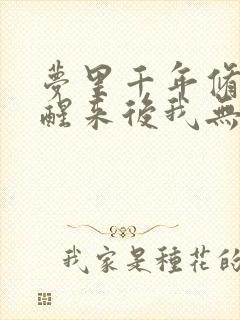 夢里千年脩
醒來後我無
我家是種花的